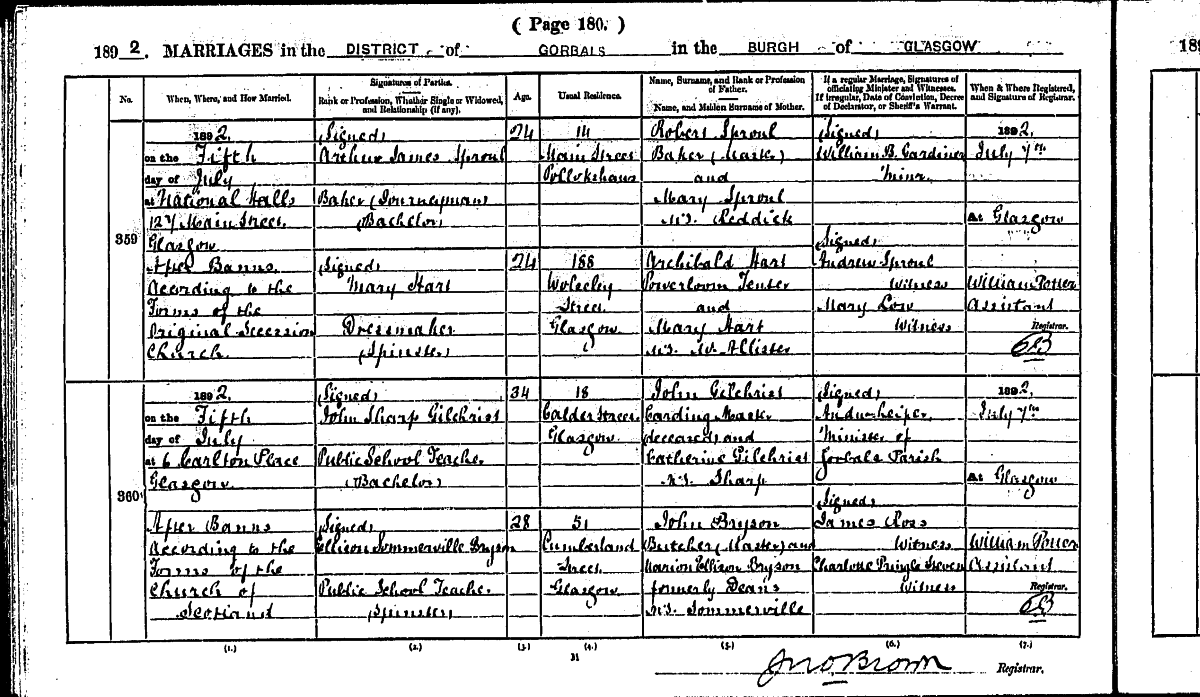 ( Page 180. )
1892. MARRIAGES in the DISTRICT of GORBALS in the BURGH of GLASGOW
189
No.
When, Where, and How Married.
Signatures of Parties.
Rank or Profession, Whether Single or Widowed, and Relationship (if any).
Age.
Usual Residence.
Name, Surname, and Rank or Profession of Father.
Name, and Maiden Surname of Mother.
If a regular Marriage, Signatures of officiating Minister and Witnesses.
If irregular, Date of Conviction, Decree of Declarator, or Sheriff's Warrant.
When & Where Registered, and Signature of Registrar.
359
1892,
on the Fifth
day of July
at National Halls
127 Main Street.
Glasgow
After Banns.
According to the
Forms of the
Original Secession
Church.
(Signed)
Arthur James Sproul
Baker (Journeyman)
(Bachelor)
(Signed)
Mary Hart
Dressmaker
(Spinster)
24
24
14
Main Street
Pollokshaws
188
Wolseley
Street
Glasgow
Robert Sproul
Baker (Master)
and
Mary Sproul
M.S. Reddick
Archibald Hart
Powerloom Tenter
and
Mary Hart
M.S. McAllister
(Signed)
William B. Gardiner
Minr.
(Signed)
Andrew Sproul
Witness
Mary Low
Witness
1892,
July 7th
At Glasgow
William Potter
Assistant
Registrar.
360
1892,
on the Fifth
day of July
at 6 Carlton Place
Glasgow
After Banns
According to the
Forms of the
Church of
Scotland
(Signed)
John Sharp Gilchrist
Public School Teacher
(Bachelor)
(Signed)
Ellison Sommerville Bryson
Public School Teacher
(Spinster)
34
28
18
Calder Street
Glasgow
51
Cumberland
Street
Glasgow
John Gilchrist
Carding Master
(deceased) and
Catherine Gilchrist
M.S. Sharp
John Bryson
Butcher (Master) and
Marion Ellison Bryson
formerly Deans
M.S. Sommerville
(Signed)
Minister of
Gorbals Parish
(Signed)
James Ross
Witness
Charlotte Pringle Steven
Witness
1892,
July 7th
At Glasgow
William Potter
Assistant
Registrar.
(1.) (2.) (3.) (4.) (5.) (6.) (7.)
31
Jno Brown Registrar.